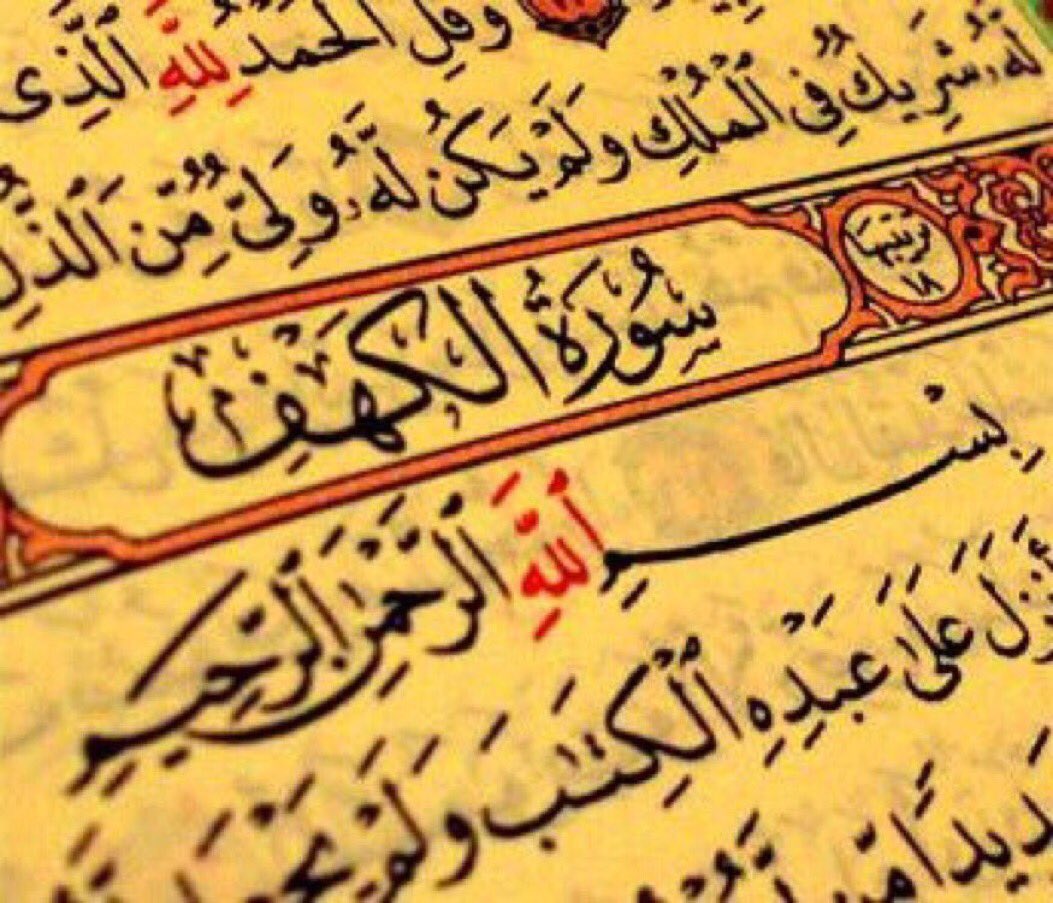 وَقُلِ ٱلْحَمْدُ لِلَّهِ ٱلَّذِى
لَّهُۥ شَرِيكٌ فِى ٱلْمُلْكِ وَلَمْ يَكُن لَّهُۥ وَلِىٌّ مِّنَ ٱلذُّلِّ
ترتيبها ١٨
سُورَةُ الكَهْفِ
بِسْمِ ٱللَّهِ ٱلرَّحْمَٰنِ ٱلرَّحِيمِ
عَلَىٰ عَبْدِهِ ٱلْكِتَٰبَ وَلَمْ